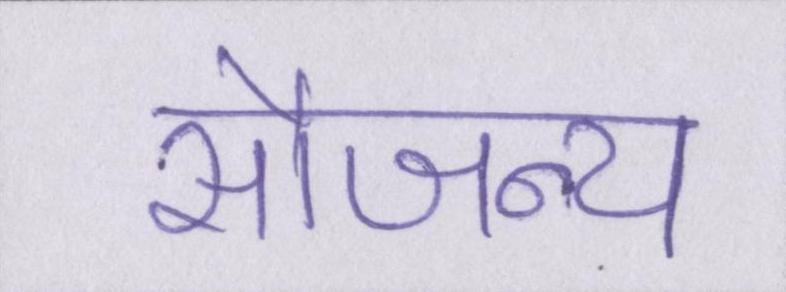 सौजन्य